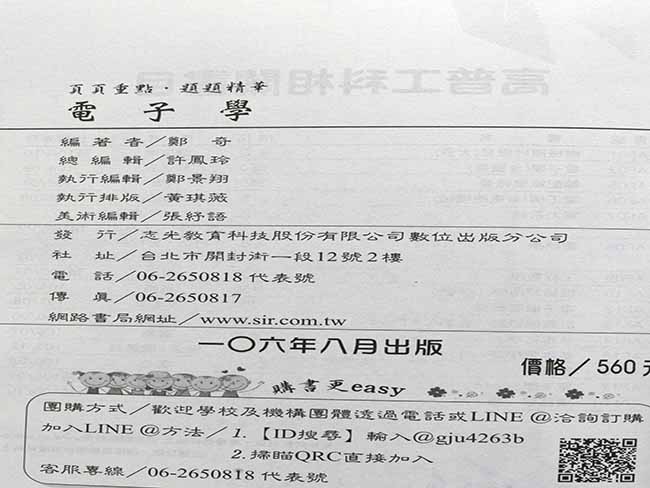 頁頁重點·題題精華
電子學
編著者／鄭 奇
總編輯／許鳳玲
執行編輯／鄭景翔
執行排版／黃琪薇
美術編輯／張紓語
發 行／志光教育科技股份有限公司數位出版分公司
社 址／台北市開封街一段12號2樓
電 話／06-2650818 代表號
傳 真／06-2650817
網路書局網址／www.sir.com.tw
一〇六年八月出版
價格／560元
購書更easy
團購方式／歡迎學校及機構團體透過電話或LINE @洽詢訂購
加入LINE @方法／1.【ID搜尋】輸入@gju4263b
2.掃瞄QRC直接加入
客服專線／06-2650818 代表號